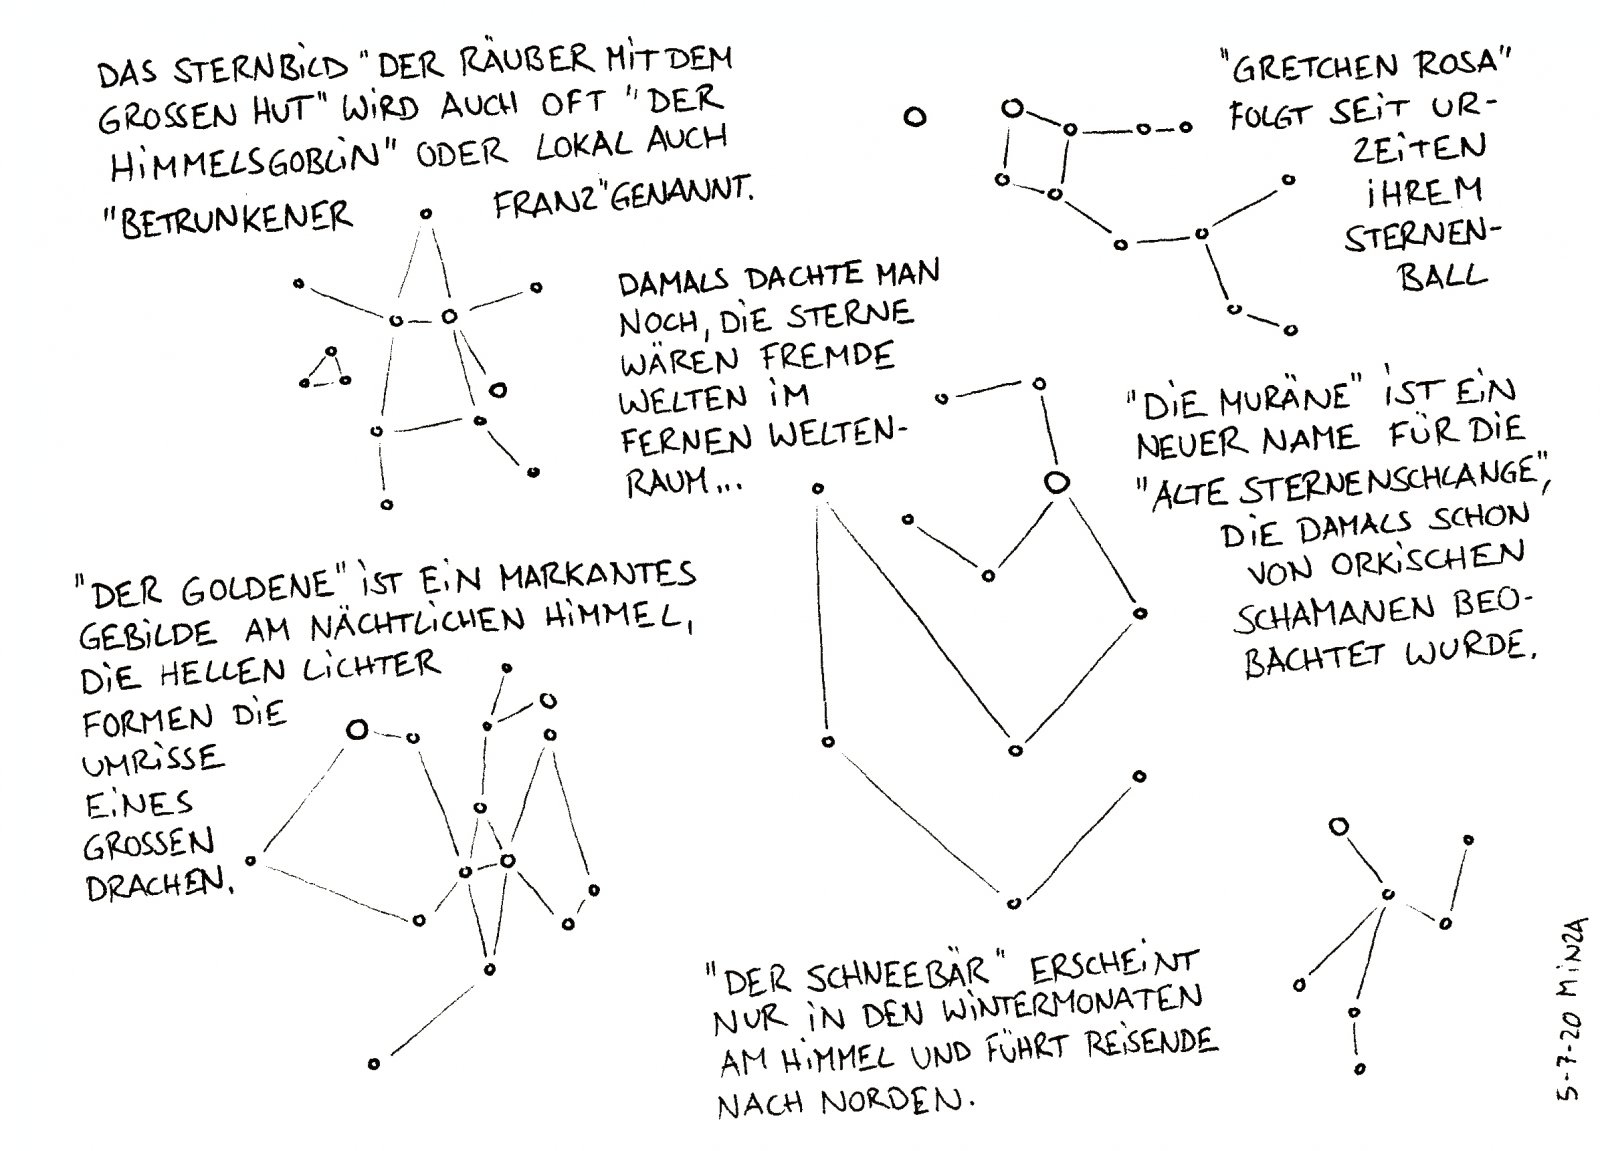 DAS STERNBiLD "DER RÄUBER MiT DEM
GROSSEN HUT" WiRD AUCH OFT "DER
HiMMELSGOBLiN" ODER LOKAL AUCH
"BETRUNKENER FRANZ" GENANNT.
"GRETCHEN ROSA"
FOLGT SEiT UR-
ZEiTEN
iHREM
STERNEN-
BALL
DAMALS DACHTE MAN
NOCH, DiE STERNE
WÄREN FREMDE
WELTEN iM
FERNEN WELTEN-
RAUM...
"DiE MURÄNE" iST EiN
NEUER NAME FÜR DiE
"ALTE STERNENSCHLANGE",
DiE DAMALS SCHON
VON ORKiSCHEN
SCHAMANEN BEO-
BACHTET WURDE.
"DER GOLDENE" iST EiN MARKANTES
GEBiLDE AM NÄCHTLiCHEN HiMMEL,
DiE HELLEN LiCHTER
FORMEN DiE
UMRiSSE
EiNES
GROSSEN
DRACHEN.
"DER SCHNEEBÄR" ERSCHEiNT
NUR iN DEN WiNTERMONATEN
AM HiMMEL UND FÜHRT REiSENDE
NACH NORDEN.
5-7-20 MiNZA